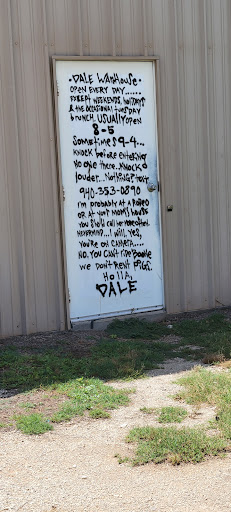 • DALE WAREHOUSE •
OPEN EVERY DAY......
EXCEPT WEEKENDS, HOLIDAYS
& THE OCCASIONAL TUESDAY
BRUNCH. USUALLY OPEN
8-5
SOMETIMES 9-4...
KNOCK BEFORE ENTERING
NO ONE THERE...KNOCK
LOUDER... NOTHING? TEXT
940-353-0890
I'M PROBABLY AT A RODEO
OR AT YOUR MOM'S HOUSE
YOU SHOULD CALL HER MORE OFTEN
NEVERMIND...I WILL. YES,
YOU'RE ON CAMERA....
NO. YOU CAN'T RIDE
WE DON'T RENT PIGS.
HOLLA,
DALE